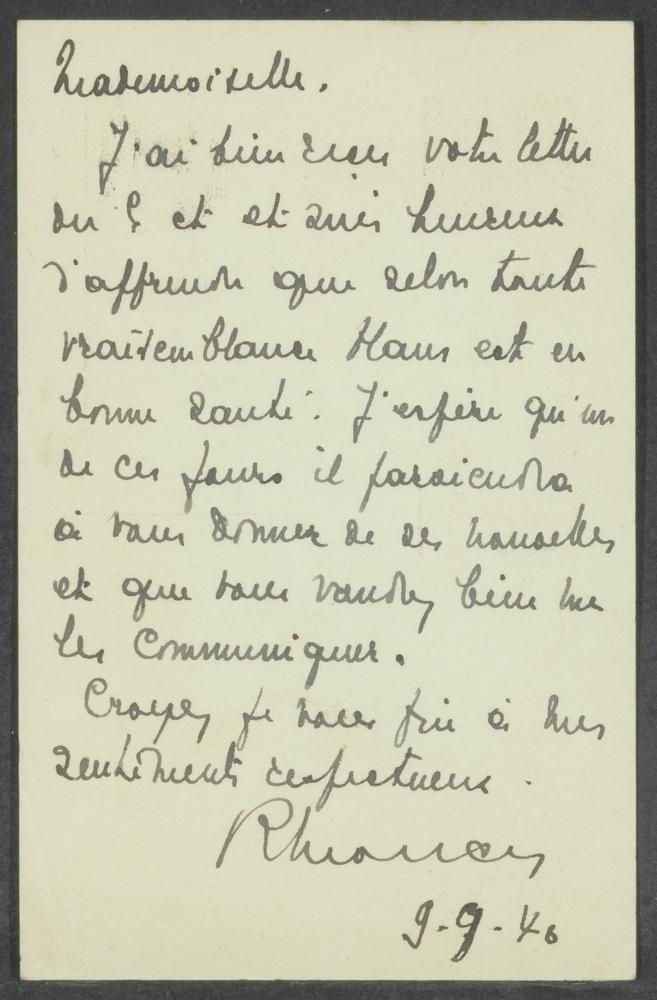 Mademoiselle.
J'ai bien reçu votre lettre
du 5 et et suis heureux
d'apprendre que selon toute
vraisemblance Hans est en
bonne santé. J'espère qu'un
de ces jours il parviendra
à vous donner de ses nouvelles
et que vous voudrez bien me
les communiquer.
Croyez je vous prie à mes
sentiments respectueux.
9-9-40